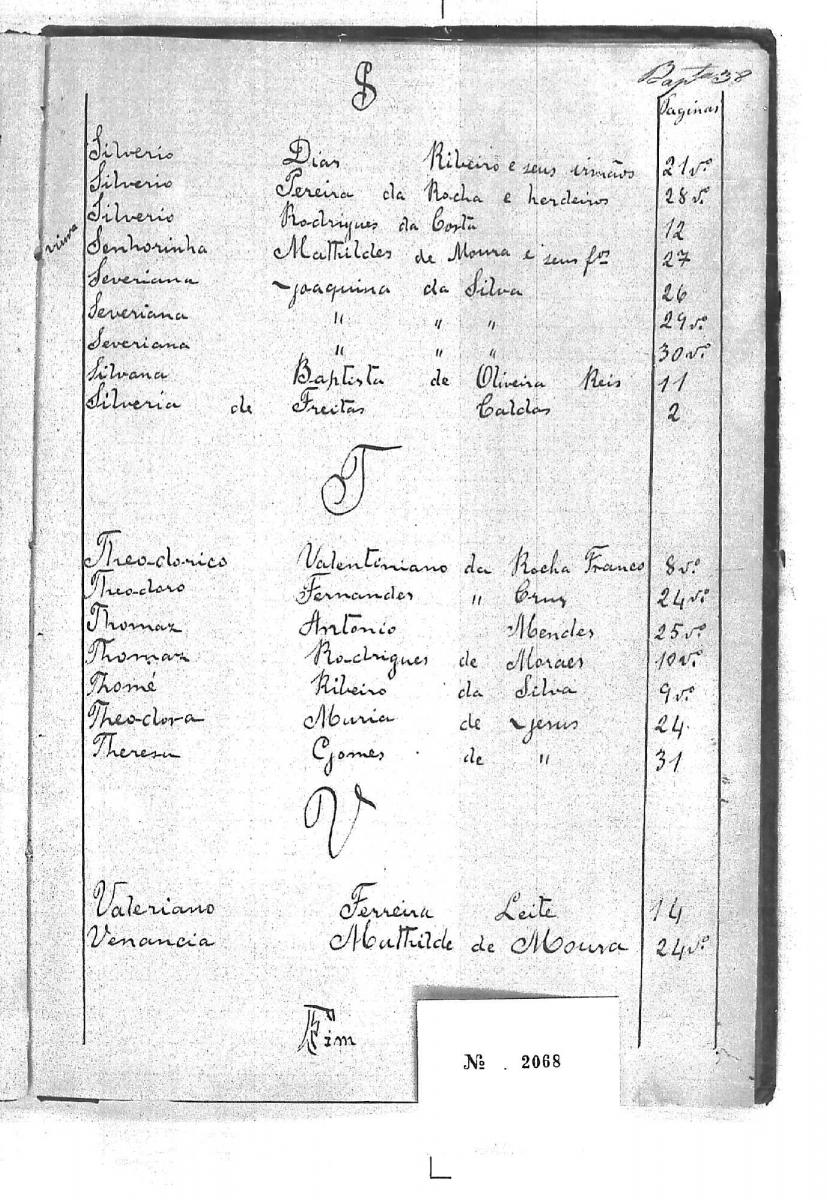 S
Bapta 38
Paginas
Silverio Dias Ribeiro e seus irmãos 21 vo
Silverio Pereira da Rocha e herdeiros 28 vo
Silverio Rodrigues da Costa 12
viuva Senhorinha Mathildes de Moura e seus fos 27
Severiana Joaquina da Silva 26
Severiana " " " 29 vo
Severiana " " " 30 vo
Silvana Baptista de Oliveira Reis 11
Silveria de Freitas Caldas 2
T
Theodorico Valentiniano da Rocha Franco 8 vo
Theodoro Fernandes " Cruz 24 vo
Thomaz Antonio Mendes 25 vo
Thomaz Rodrigues de Moraes 10 vo
Thomé Ribeiro da Silva 9 vo
Theodora Maria de Jesus 24
Theresa Gomes de " 31
V
Valeriano Ferreira Leite 14
Venancia Mathilde de Moura 24 vo
Fim
№ . 2068